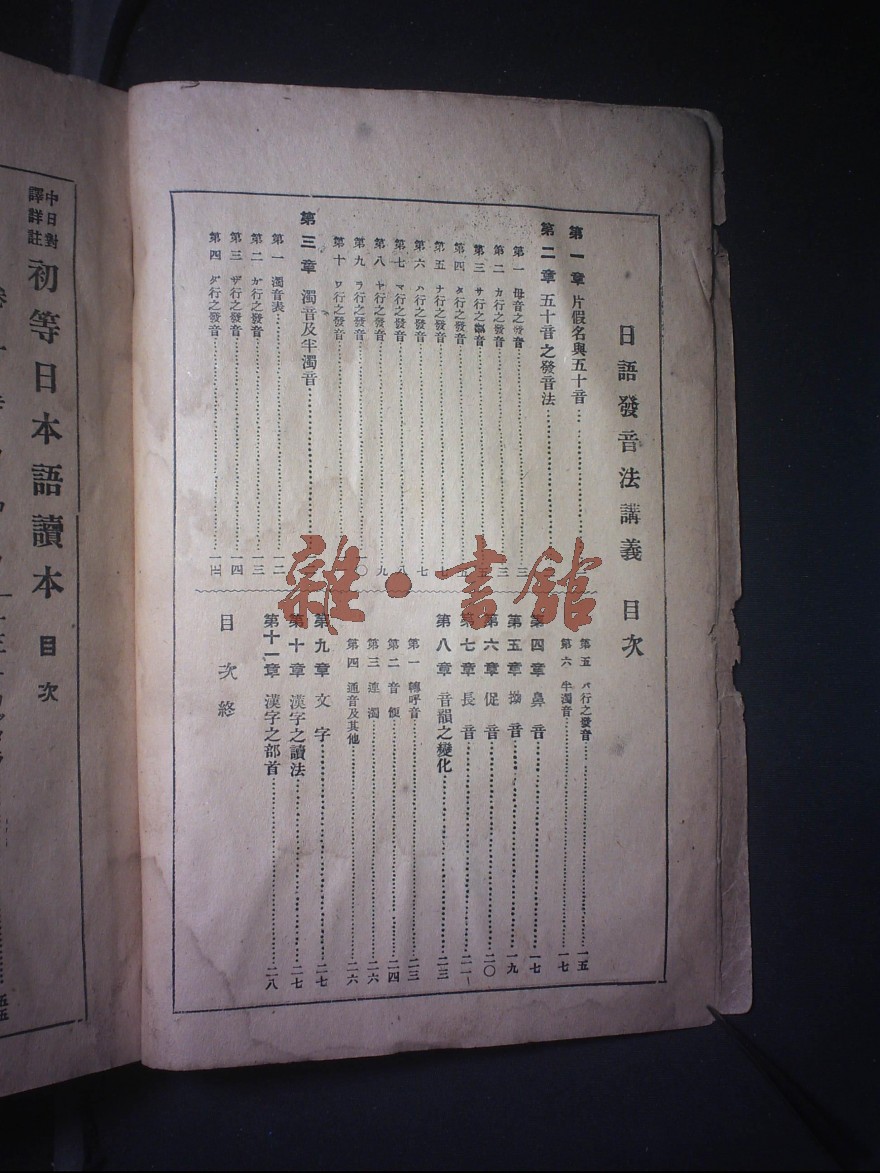 日語發音法講義 目次
第一章 片假名與五十音
第二章 五十音之發音法
第一 母音之發音 三
第二 カ行之發音 三
第三 サ行之發音
第四 タ行之發音
第五 ナ行之發音
第六 ハ行之發音 七
第七 マ行之發音 八
第八 ヤ行之發音 九
第九 ラ行之發音
第十 ワ行之發音
第三章 濁音及半濁音
第一 濁音表 一二
第二 ガ行之發音 一三
第三 ザ行之發音 一四
第四 ダ行之發音 一四
第五 バ行之發音 一五
第六 半濁音 一七
第四章 鼻音 一七
第五章 拗音 一九
第六章 促音 二〇
第七章 長音 二一
第八章 音韻之變化 二三
第一 轉呼音 二三
第二 音便 二四
第三 連濁 二六
第四 通音及其他 二六
第九章 文字 二七
第十章 漢字之讀法 二七
第十一章 漢字之部首 二八
目次終
雜·書館
中日對
譯詳註
初等日本語讀本 目次
五五